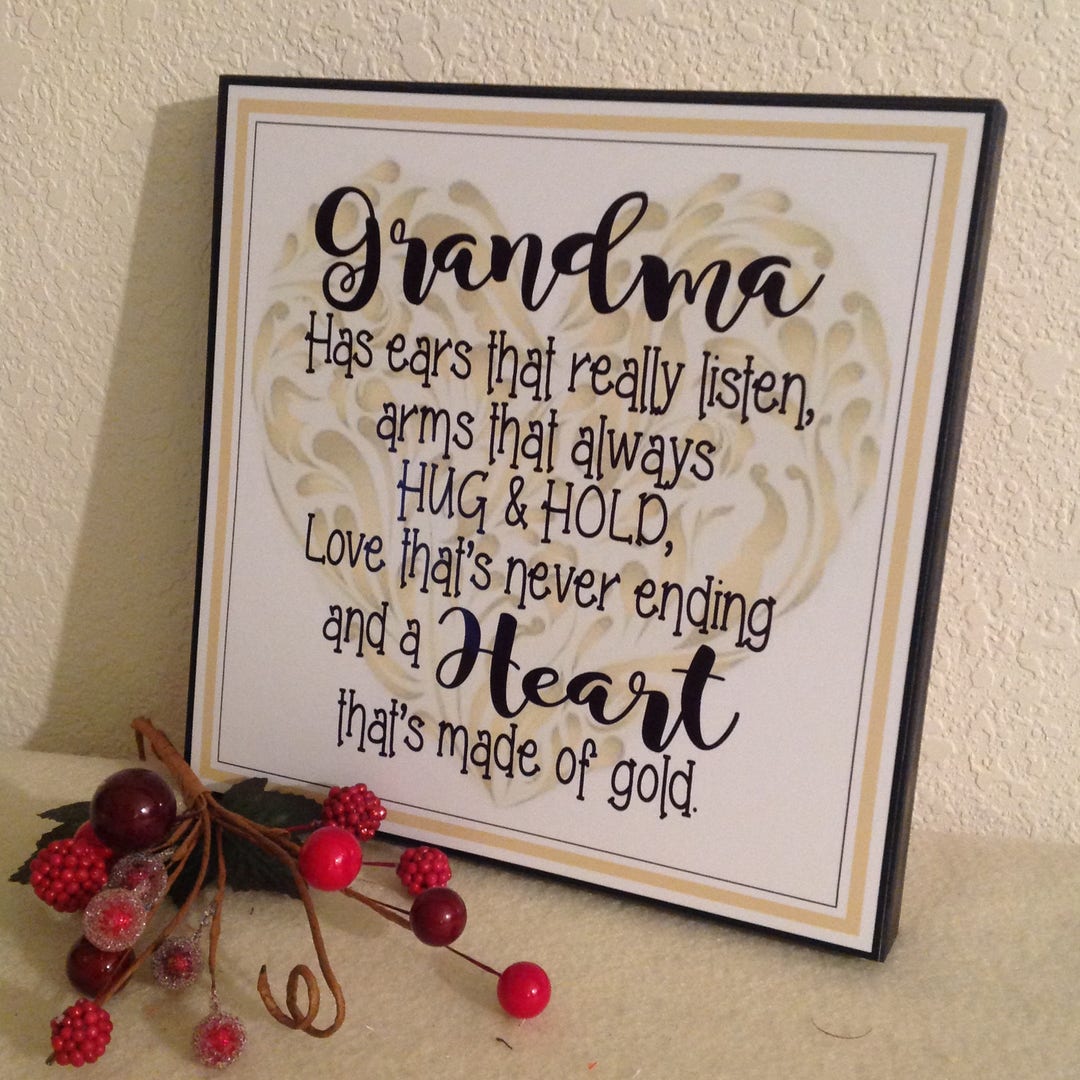 Grandma
Has ears that really listen,
arms that always
HUG & HOLD,
Love that's never ending
and a Heart
that's made of gold.